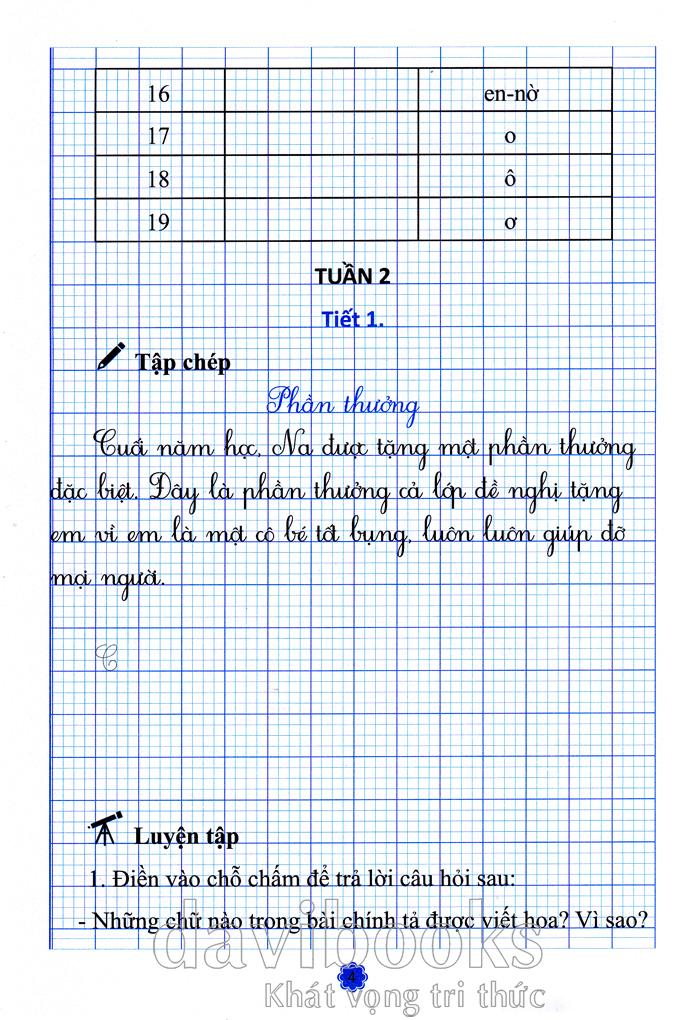 16 en-nờ
17 o
18 ô
19 ơ
TUẦN 2
Tiết 1.
Tập chép
Phần thưởng
Cuối năm học, Na được tặng một phần thưởng
đặc biệt. Đây là phần thưởng cả lớp đề nghị tặng
em vì em là một cô bé tốt bụng, luôn luôn giúp đỡ
mọi người.
C
Luyện tập
1. Điền vào chỗ chấm để trả lời câu hỏi sau:
- Những chữ nào trong bài chính tả được viết hoa? Vì sao?
davibooks
4
Khát vọng tri thức